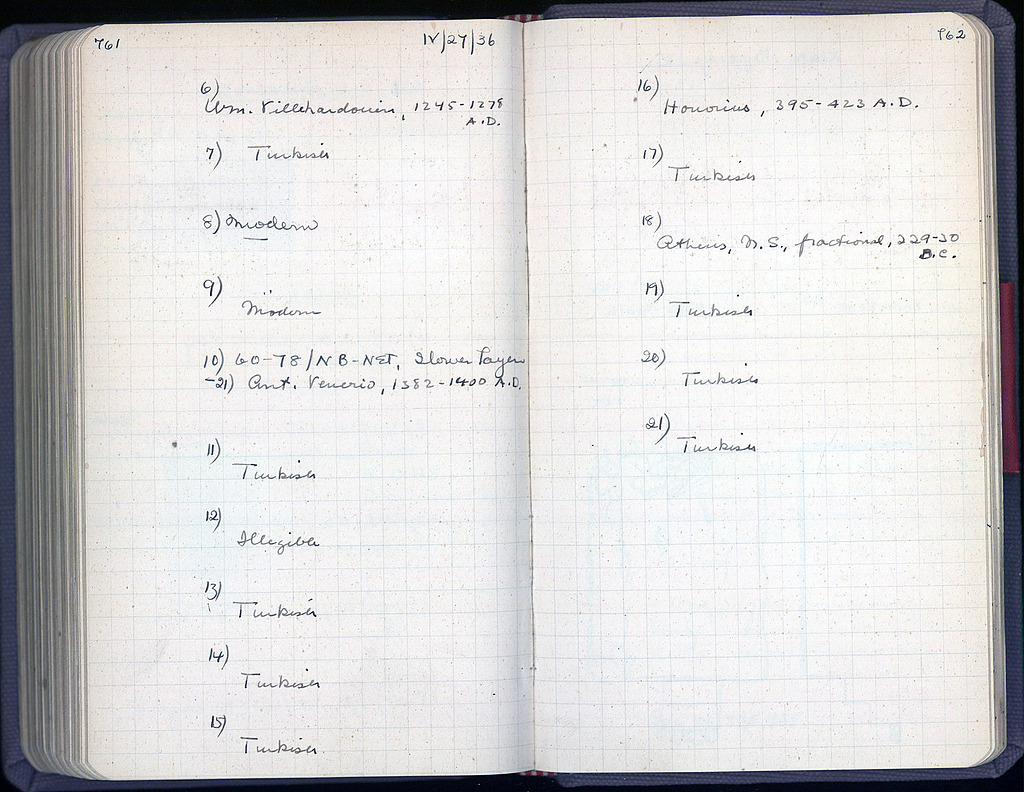 761
IV/27/36
6)
Wm. Villehardouin, 1245-1278
A.D.
7) Turkish
8) Modern
9)
Modern
10) 60-78/NB-NET, Slower Layer
-21) Ant. Venerio, 1382-1400 A.D.
11)
Turkish
12)
Illegible
13)
Turkish
14)
Turkish
15)
Turkish
762
16)
Honorius, 395-423 A.D.
17)
Turkish
18)
Athens, N.S., fractional, 229-30
B.C.
19)
Turkish
20)
Turkish
21)
Turkish